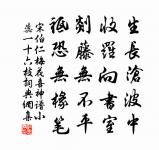 生長滄波中
收羅向書室
剡藤無不平
祇恐無椽笔
宋伯仁梅花喜神譜小
蕊一十六枝詞典网集